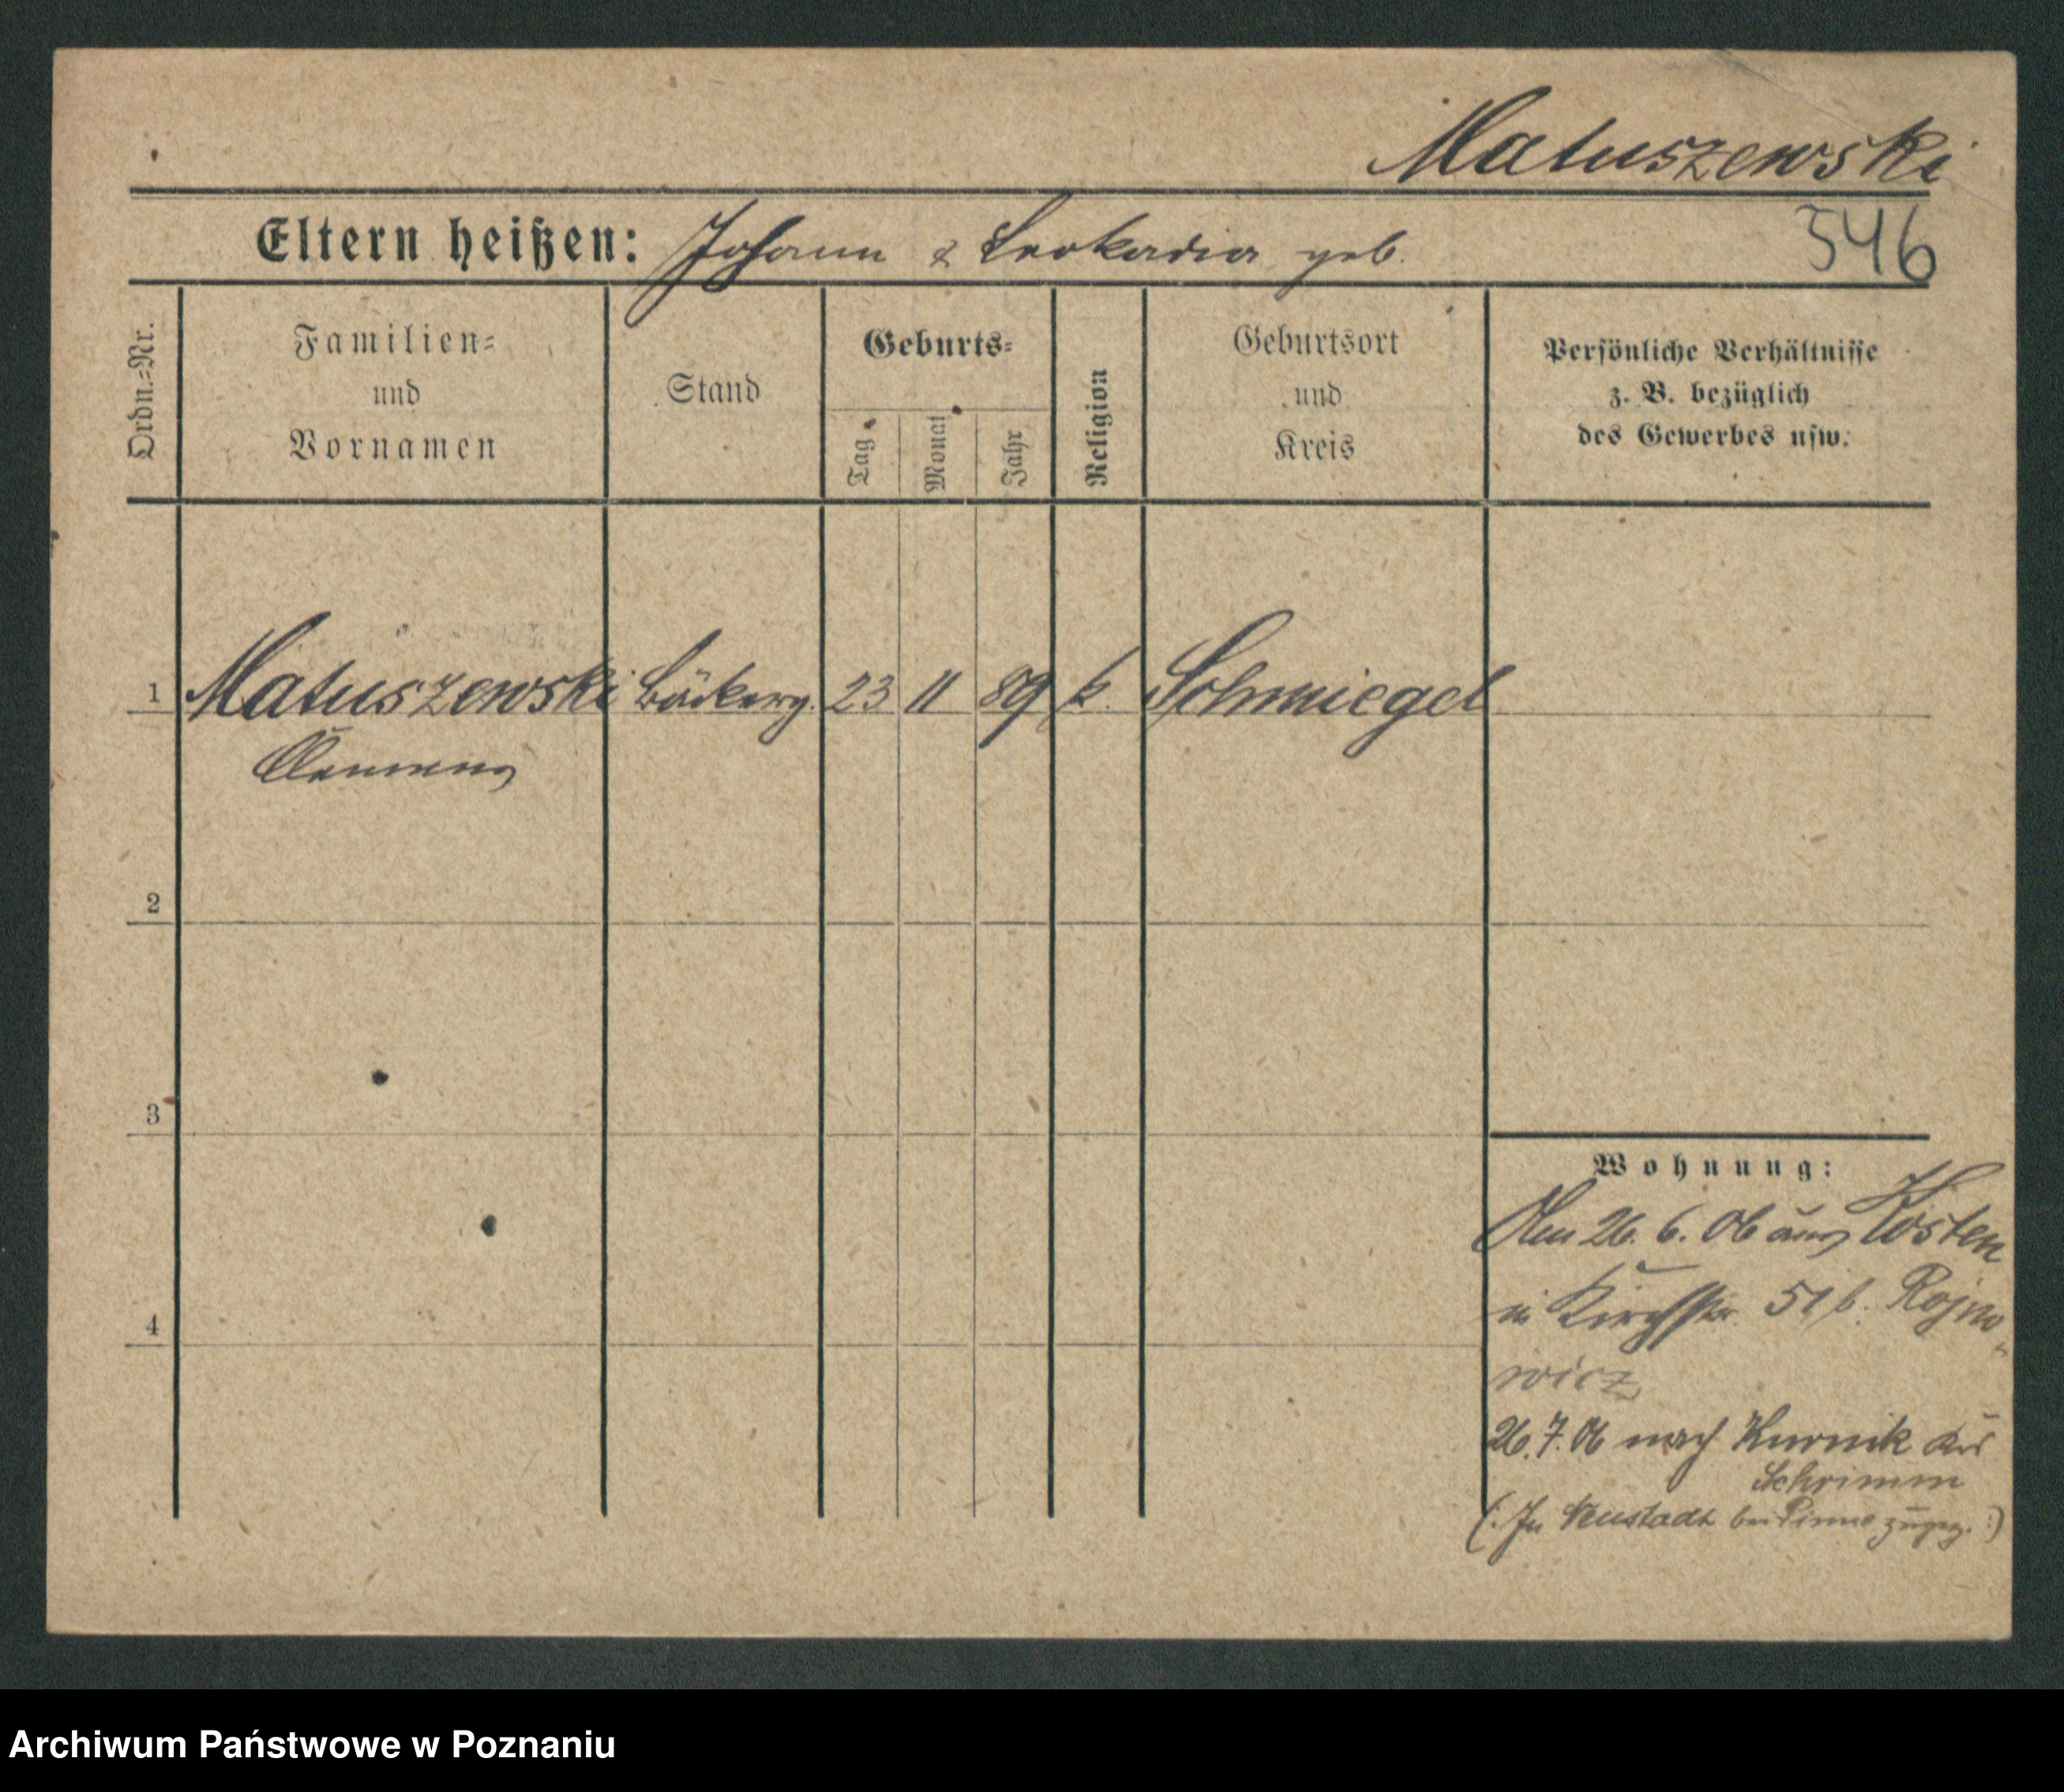 Matuszewski
546
Eltern heißen: Johann & Leokadia geb.
Ordn.-Nr.
Familien-
und
Vornamen
Stand
Geburts-
Tag
Monat
Jahr
Religion
Geburtsort
und
Kreis
Persönliche Verhältnisse
z. B. bezüglich
des Gewerbes usw.
1 Matuszewski Bäckerg. 23 11 89 k. Schmiegel
Clemens
2
3
4
Wohnung:
Den 26. 6. 06 aus Kosten
in Kirchstr. 51 b. Rojno-
wicz
26. 7. 06 nach Kurnik Krs
Schrimm
(: In Neustadt bei Pinne zugez. :)
Archiwum Państwowe w Poznaniu